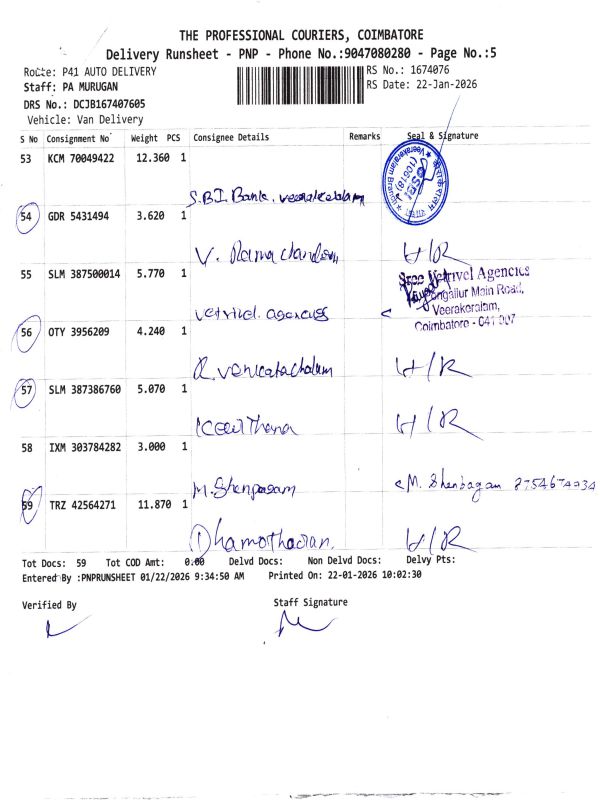 THE PROFESSIONAL COURIERS, COIMBATORE
Delivery Runsheet - PNP - Phone No.:9047080280 - Page No.:5
Route: P41 AUTO DELIVERY
RS No.: 1674076
Staff: PA MURUGAN
RS Date: 22-Jan-2026
DRS No.: DCJB167407605
Vehicle: Van Delivery
S No Consignment No Weight PCS Consignee Details Remarks Seal & Signature
53 KCM 70049422 12.360 1
S.B.I. Bank. veerakeralam
54 GDR 5431494 3.620 1
V. Ramachandran H/R
55 SLM 387500014 5.770 1
Sree Vetrivel Agencies
Main Road,
Veerakeralam,
Coimbatore - 641 007
vetrivel. agencies
56 OTY 3956209 4.240 1
R. venkatachalam H/R
57 SLM 387386760 5.070 1
Keerthana H/R
58 IXM 303784282 3.000 1
M. Shenbagam M. Shenbagam
59 TRZ 42564271 11.870 1
Dhamotharan. H/R
Tot Docs: 59 Tot COD Amt: 0.00 Delvd Docs: Non Delvd Docs: Delvy Pts:
Entered By :PNPRUNSHEET 01/22/2026 9:34:50 AM Printed On: 22-01-2026 10:02:30
Verified By Staff Signature